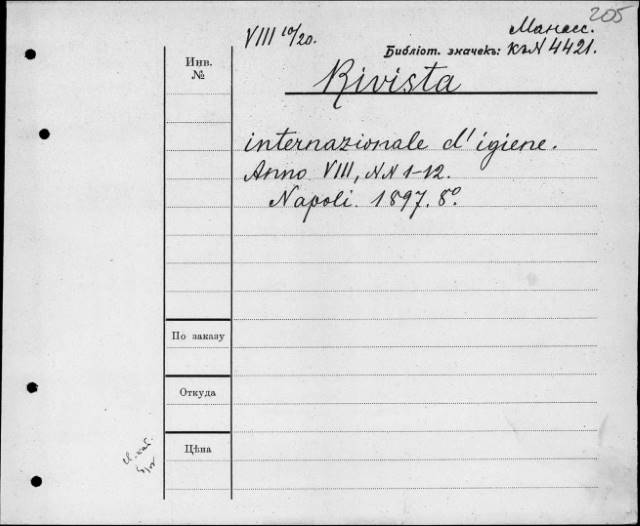 205
VIII 10/20.
Манасс.
Библіот. значекъ: къ N 4421.
Инв.
№
Rivista
internazionale d'igiene.
Anno VIII, NN 1-12.
Napoli. 1897. 8º.
По заказу
Откуда
Цѣна